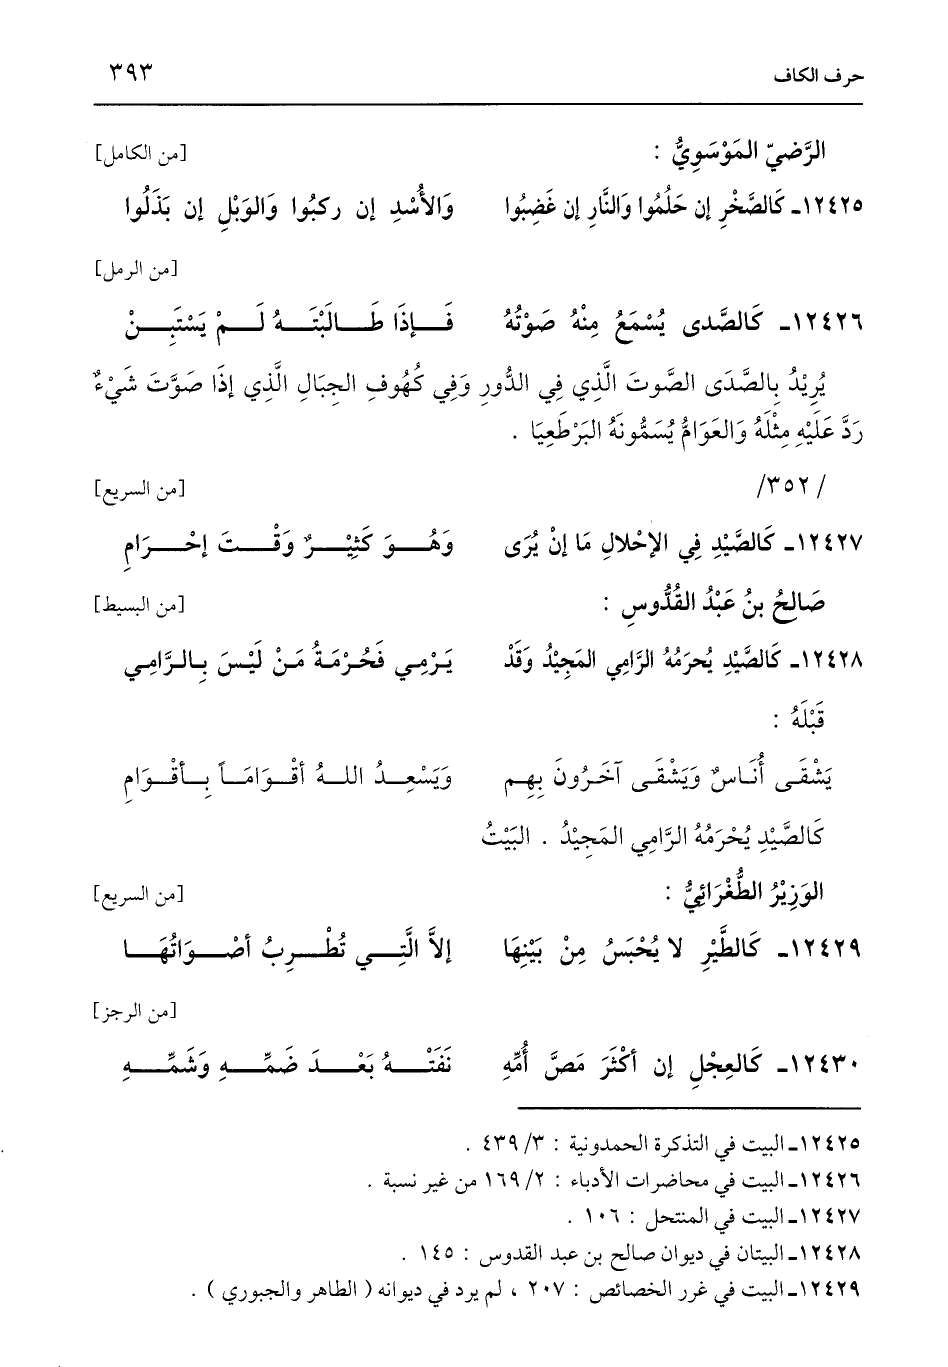 حرف الكاف ٣٩٣
الرَّضيّ المَوْسَوِيُّ : [من الكامل]
١٢٤٢٥ـ كَالصَّخْرِ إن حَلُمُوا وَالنَّارِ إن غَضِبُوا وَالأُسْدِ إن ركبُوا وَالوَبْلِ إن بَذَلُوا
[من الرمل]
١٢٤٢٦ـ كَالصَّدى يُسْمَعُ مِنْهُ صَوْتُهُ فَإذَا طَالَبْتَهُ لَمْ يَسْتَبِنْ
يُرِيْدُ بِالصَّدَى الصَّوتَ الَّذِي فِي الدُّورِ وَفِي كُهُوفِ الجِبَالِ الَّذِي إذَا صَوَّتَ شَيْءٌ
رَدَّ عَلَيْهِ مِثْلَهُ وَالعَوَامُّ يُسَمُّونَهُ البَرْطَعِيَا .
/ ٣٥٢/ [من السريع]
١٢٤٢٧ـ كَالصَّيْدِ فِي الإحْلالِ مَا إنْ يُرَى وَهُوَ كَثِيْرٌ وَقْتَ إحْرَامِ
صَالِحُ بنُ عَبْدُ القُدُّوسِ : [من البسيط]
١٢٤٢٨ـ كَالصَّيْدِ يُحرَمُهُ الرَّامِي المَجِيْدُ وَقَدْ يَرْمِي فَحُرْمَةُ مَنْ لَيْسَ بِالرَّامِي
قَبْلَهُ :
يَشْقَى أُنَاسٌ وَيَشْقَى آخَرُونَ بِهِم وَيَسْعِدُ اللهُ أقْوَامَاً بِأقْوَامِ
كَالصَّيْدِ يُحْرَمُهُ الرَّامِي المَجِيْدُ . البَيْتُ
الوَزِيْرُ الطُّغْرَائِيُّ : [من السريع]
١٢٤٢٩ـ كَالطَّيْرِ لا يُحْبَسُ مِنْ بَيْنِهَا إلاَّ الَّتِي تُطْرِبُ أصْوَاتُهَا
[من الرجز]
١٢٤٣٠ـ كَالعِجْلِ إن أكْثَرَ مَصَّ أُمِّهِ نَفَتْهُ بَعْدَ ضَمِّهِ وَشَمِّهِ
١٢٤٢٥ـ البيت في التذكرة الحمدونية : ٣/ ٤٣٩ .
١٢٤٢٦ـ البيت في محاضرات الأدباء : ٢/ ١٦٩ من غير نسبة .
١٢٤٢٧ـ البيت في المنتحل : ١٠٦ .
١٢٤٢٨ـ البيتان في ديوان صالح بن عبد القدوس : ١٤٥ .
١٢٤٢٩ـ البيت في غرر الخصائص : ٢٠٧ ، لم يرد في ديوانه ( الطاهر والجبوري ) .